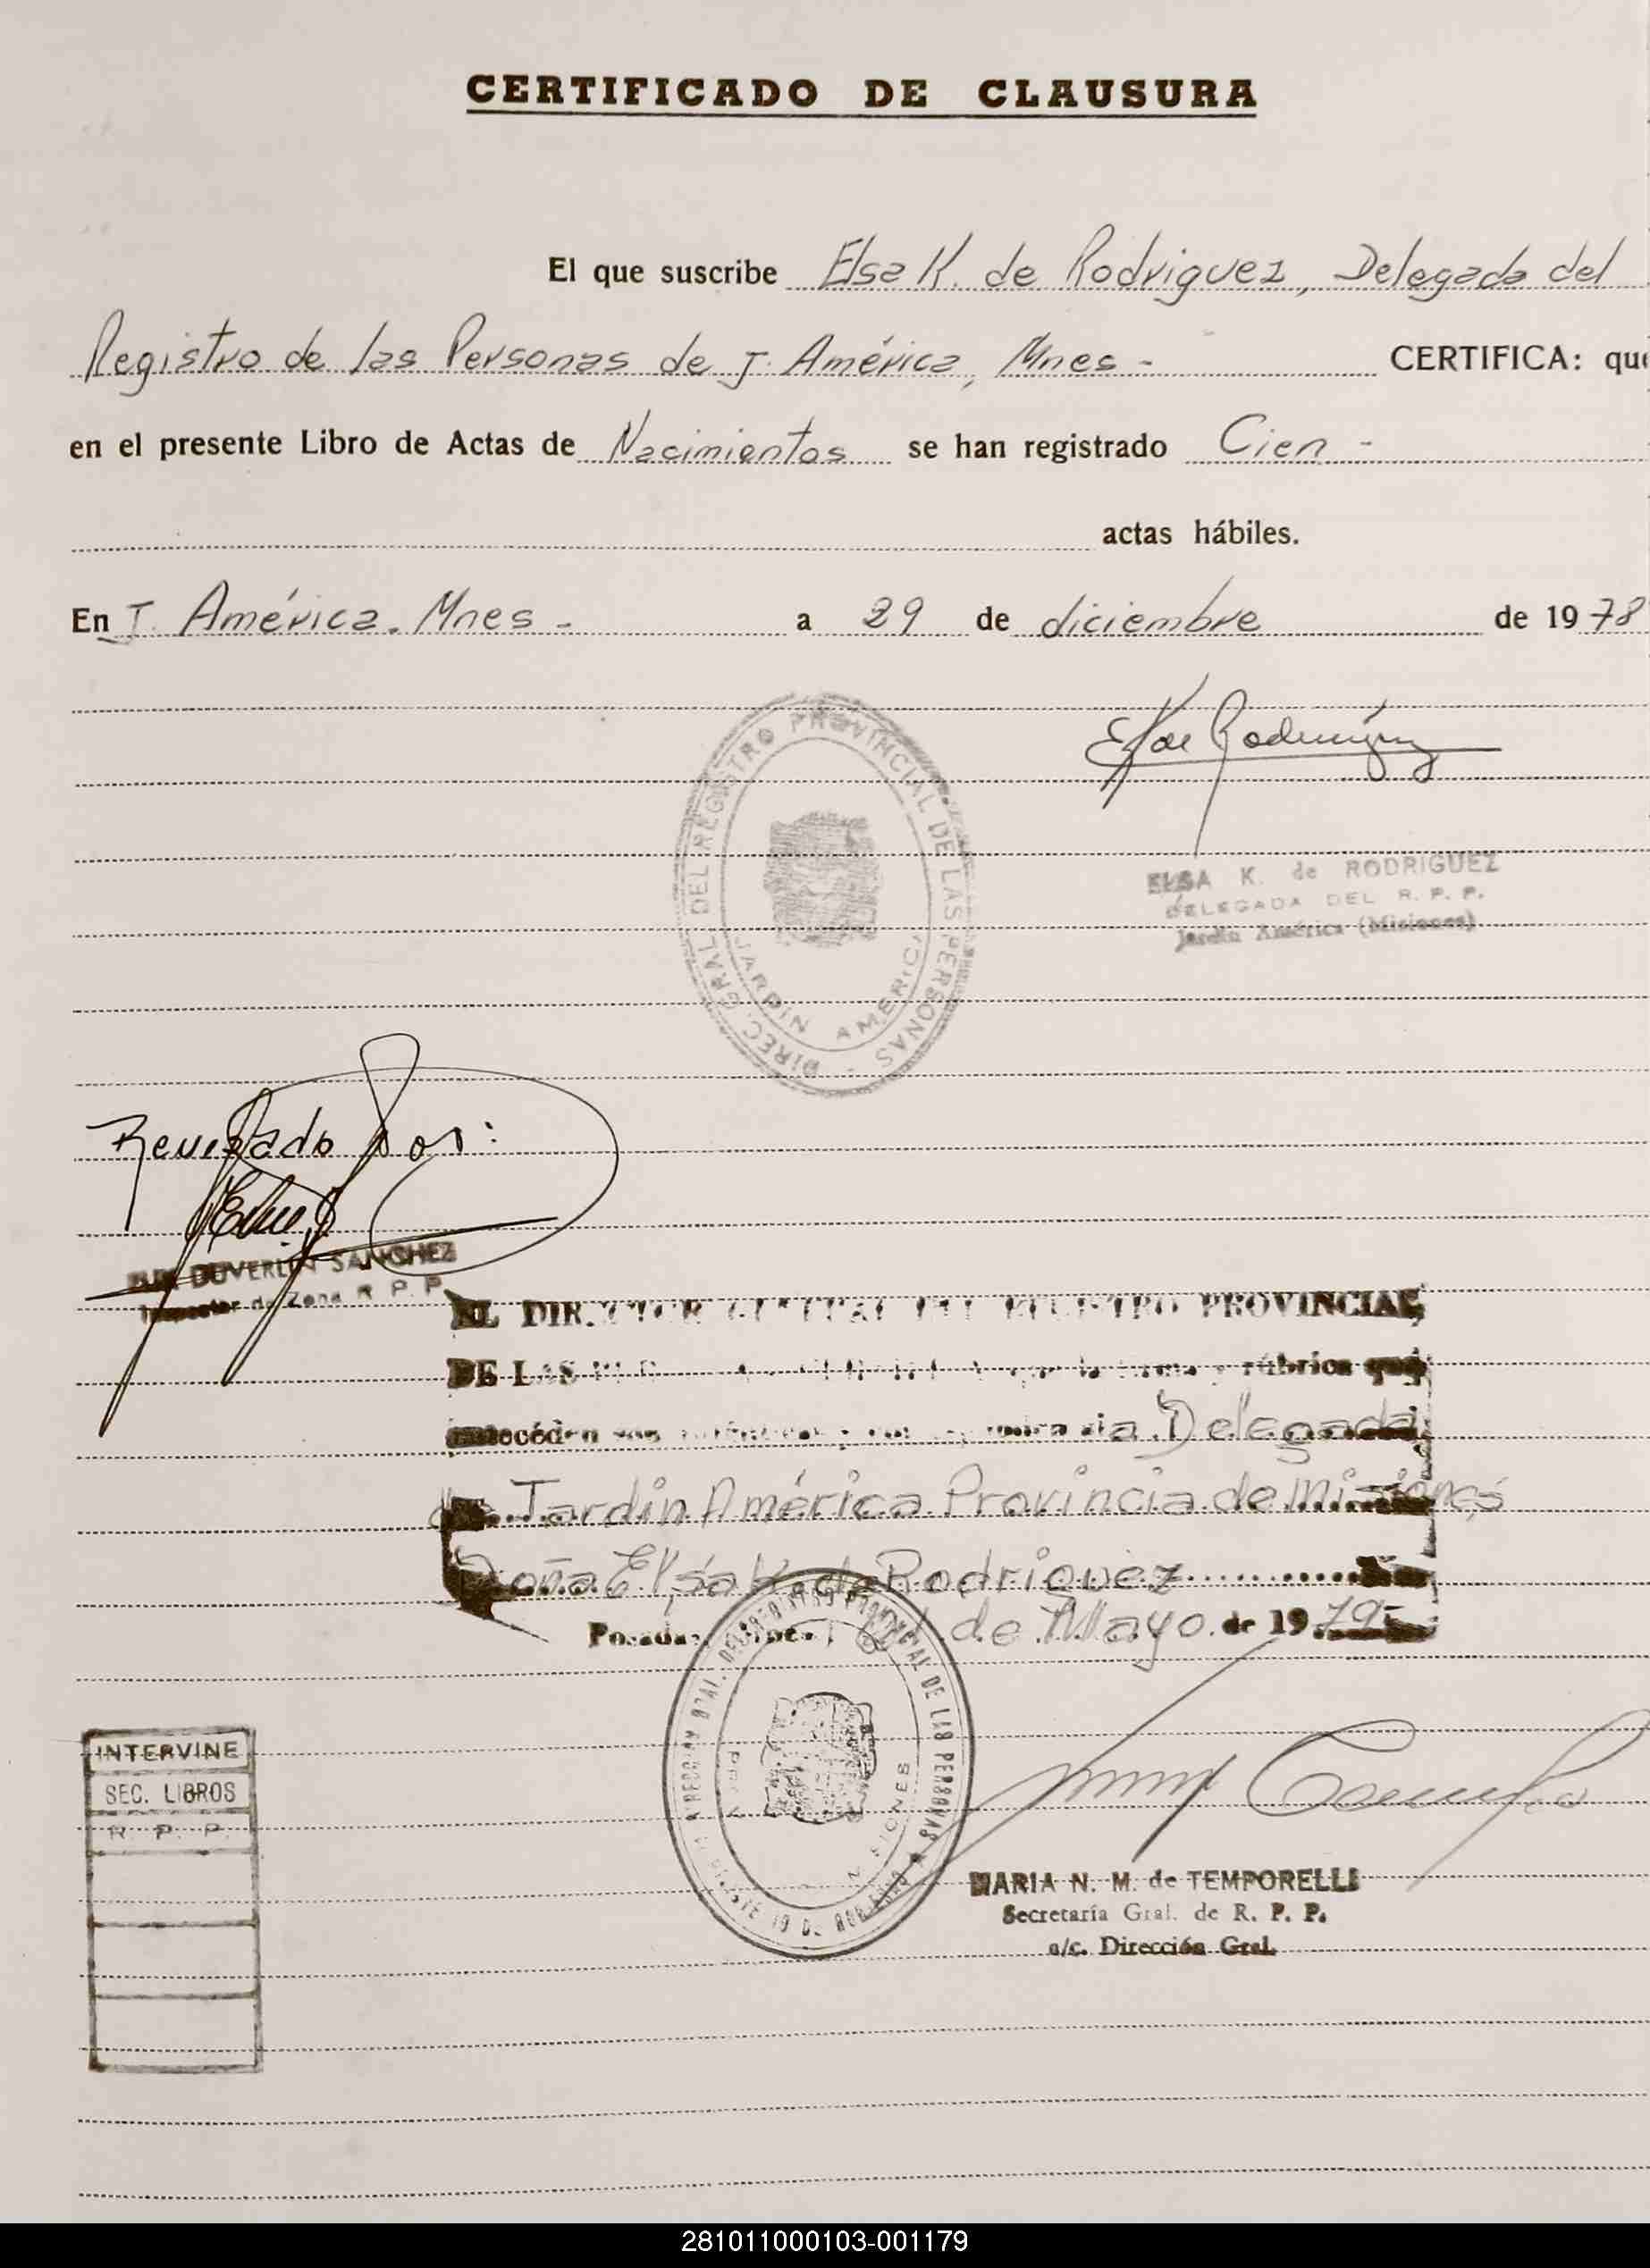 CERTIFICADO DE CLAUSURA
El que suscribe Elsa K. de Rodriguez, Delegada del
Registro de las Personas de J. América, Mnes - CERTIFICA: que
en el presente Libro de Actas de Nacimientos se han registrado Cien -
actas hábiles.
En J. América. Mnes - a 29 de diciembre de 1978
DIREC. GRAL. DEL REGISTRO PROVINCIAL DE LAS PERSONAS
JARDIN AMERICA
ELSA K. de RODRIGUEZ
DELEGADA DEL R. P. P.
Jardín América (Misiones)
Revisado por:
DUVERLIN SANCHEZ
Inspector de Zona R. P. P.
EL DIRECTOR GENERAL DEL REGISTRO PROVINCIAL
DE LAS firma y rúbrica que
anteceden son a la Delegada
de Jardín América Provincia de Misiones
Doña Elsa K. de Rodriguez
Posadas, de Mayo de 1979-
DEL REGISTRO PROVINCIAL DE LAS PERSONAS
MISIONES
INTERVINE
SEC. LIBROS
R. P. P.
MARIA N. M. de TEMPORELLI
Secretaría Gral. de R. P. P.
a/c. Dirección Gral.
281011000103-001179